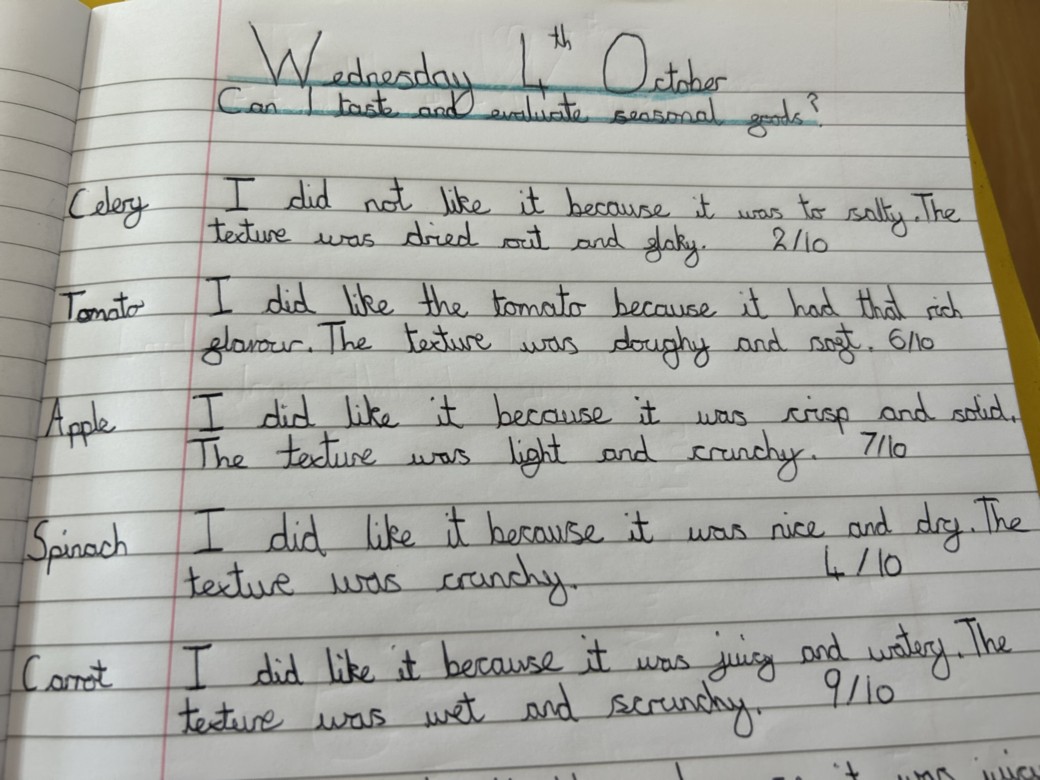 Wednesday 4th October
Can I taste and evaluate seasonal goods?
Celery I did not like it because it was to salty. The
texture was dried out and flaky. 2/10
Tomato I did like the tomato because it had that rich
flavour. The texture was doughy and soft. 6/10
Apple I did like it because it was crisp and solid.
The texture was light and crunchy. 7/10
Spinach I did like it because it was nice and dry. The
texture was crunchy. 4/10
Carrot I did like it because it was juicy and watery. The
texture was wet and scrunchy. 9/10
it was